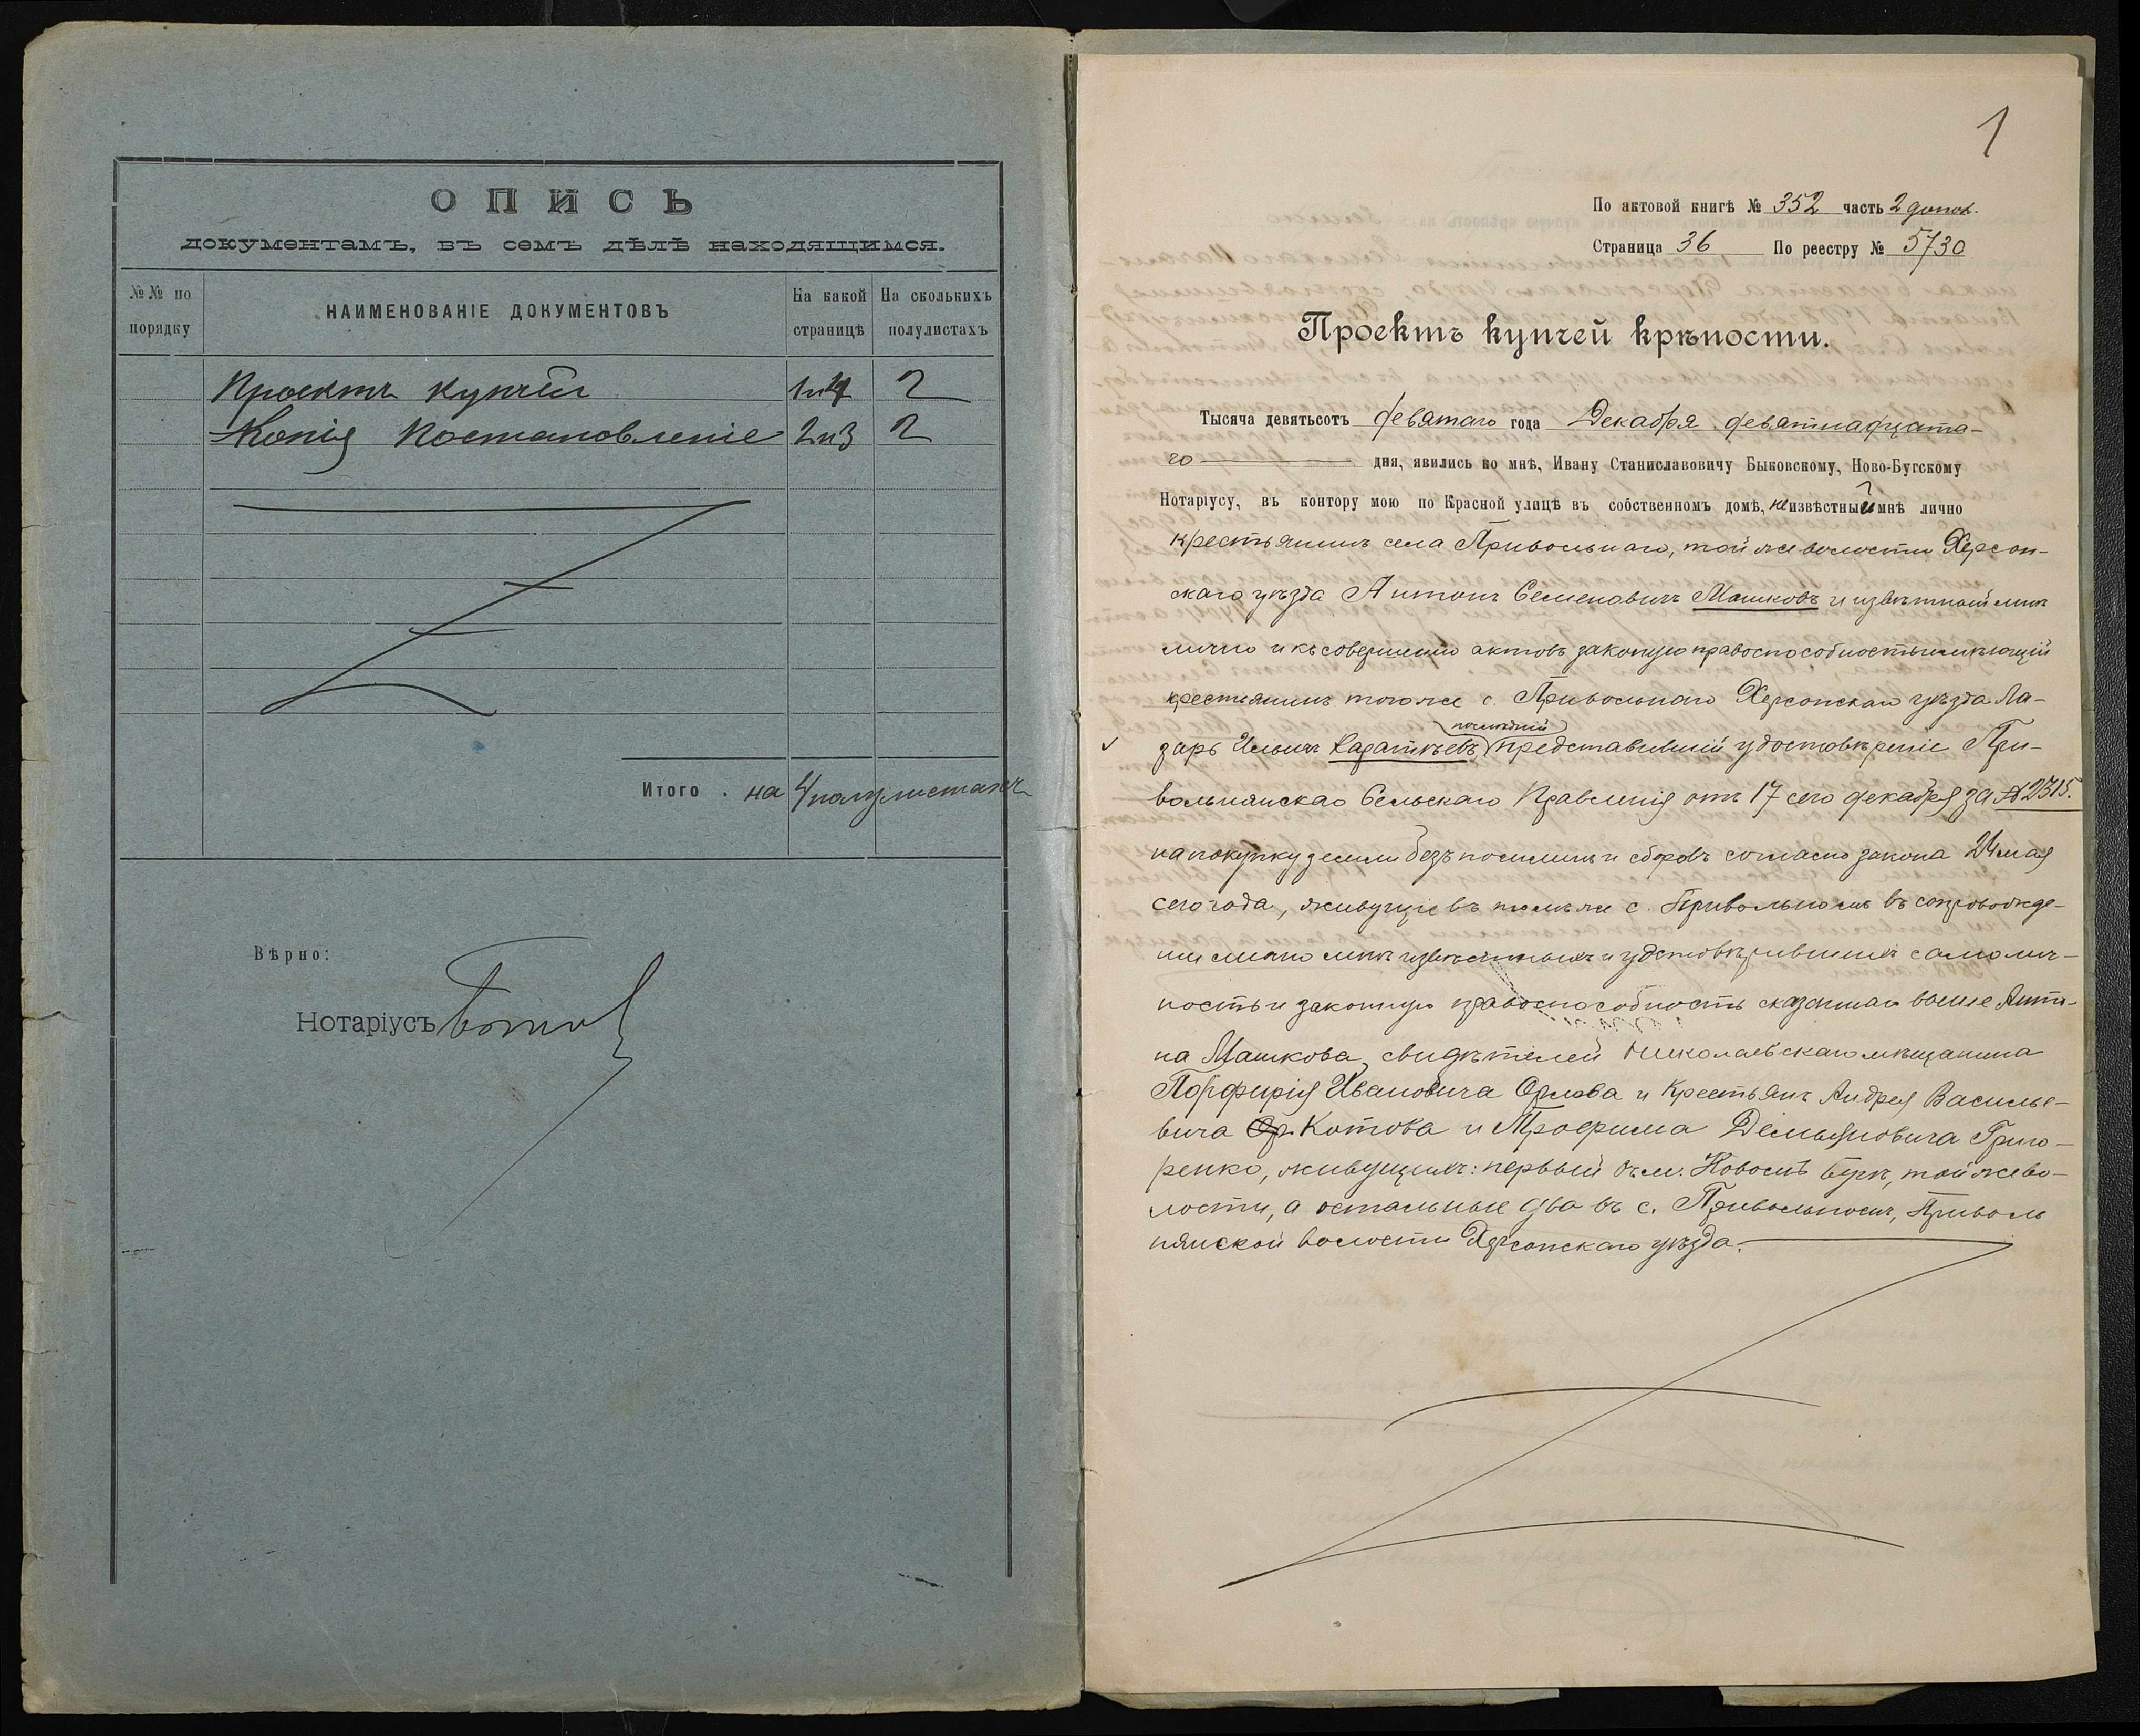 ОПИСЬ
документамъ, въ семъ дѣлѣ находящимся.
№№ по порядку
НАИМЕНОВАНІЕ ДОКУМЕНТОВЪ
На какой страницѣ
На сколькихъ полулистахъ
Проектъ купчей 1и4 2
Копія Постановленіе 2и3 2
Итого . на 4 полулистахъ
Вѣрно:
Нотаріусъ
1
По актовой книгѣ № 352 часть 2 допол.
Страница 36 По реестру № 5730
Проектъ купчей крѣпости.
Тысяча девятьсотъ девятаго года Декабря девятнадцата-
го дня, явились ко мнѣ, Ивану Станиславовичу Быковскому, Ново-Бугскому
Нотаріусу, въ контору мою по Красной улицѣ въ собственномъ домѣ, неизвѣстный мнѣ лично
крестьянинъ села Привольнаго, той же волости Херсон-
скаго уѣзда Антонъ Семеновичъ Машковъ и извѣстный мнѣ
лично и къ совершенію актовъ законную правоспособность имѣющій
крестьянинъ того же с. Привольнаго Херсонскаго уѣзда Ла-
послѣдній
зарь Ильичъ Каратѣевъ, представившій удостовѣреніе При-
вольнянскаго Сельскаго Правленія отъ 17 сего декабря за № 2315.
на покупку земли безъ пошлинъ и сборовъ согласно закона 24 мая
сего года, живущіе въ томъ же с. Привольномъ въ сопровожде-
ніи лично мнѣ извѣстныхъ и удостовѣрившихъ самолич-
ность и законную правоспособность сказаннаго выше Анто-
на Машкова, свидѣтелей Николаевскаго мѣщанина
Порфирія Ивановича Орлова и Крестьянъ Андрея Василье-
вича Ор Котова и Трофима Демьяновича Григо-
ренко, живущихъ: первый въ м. Новомъ Бугѣ, той же во-
лости, а остальные два въ с. Привольномъ, Приволь
нянской волости Херсонскаго уѣзда.